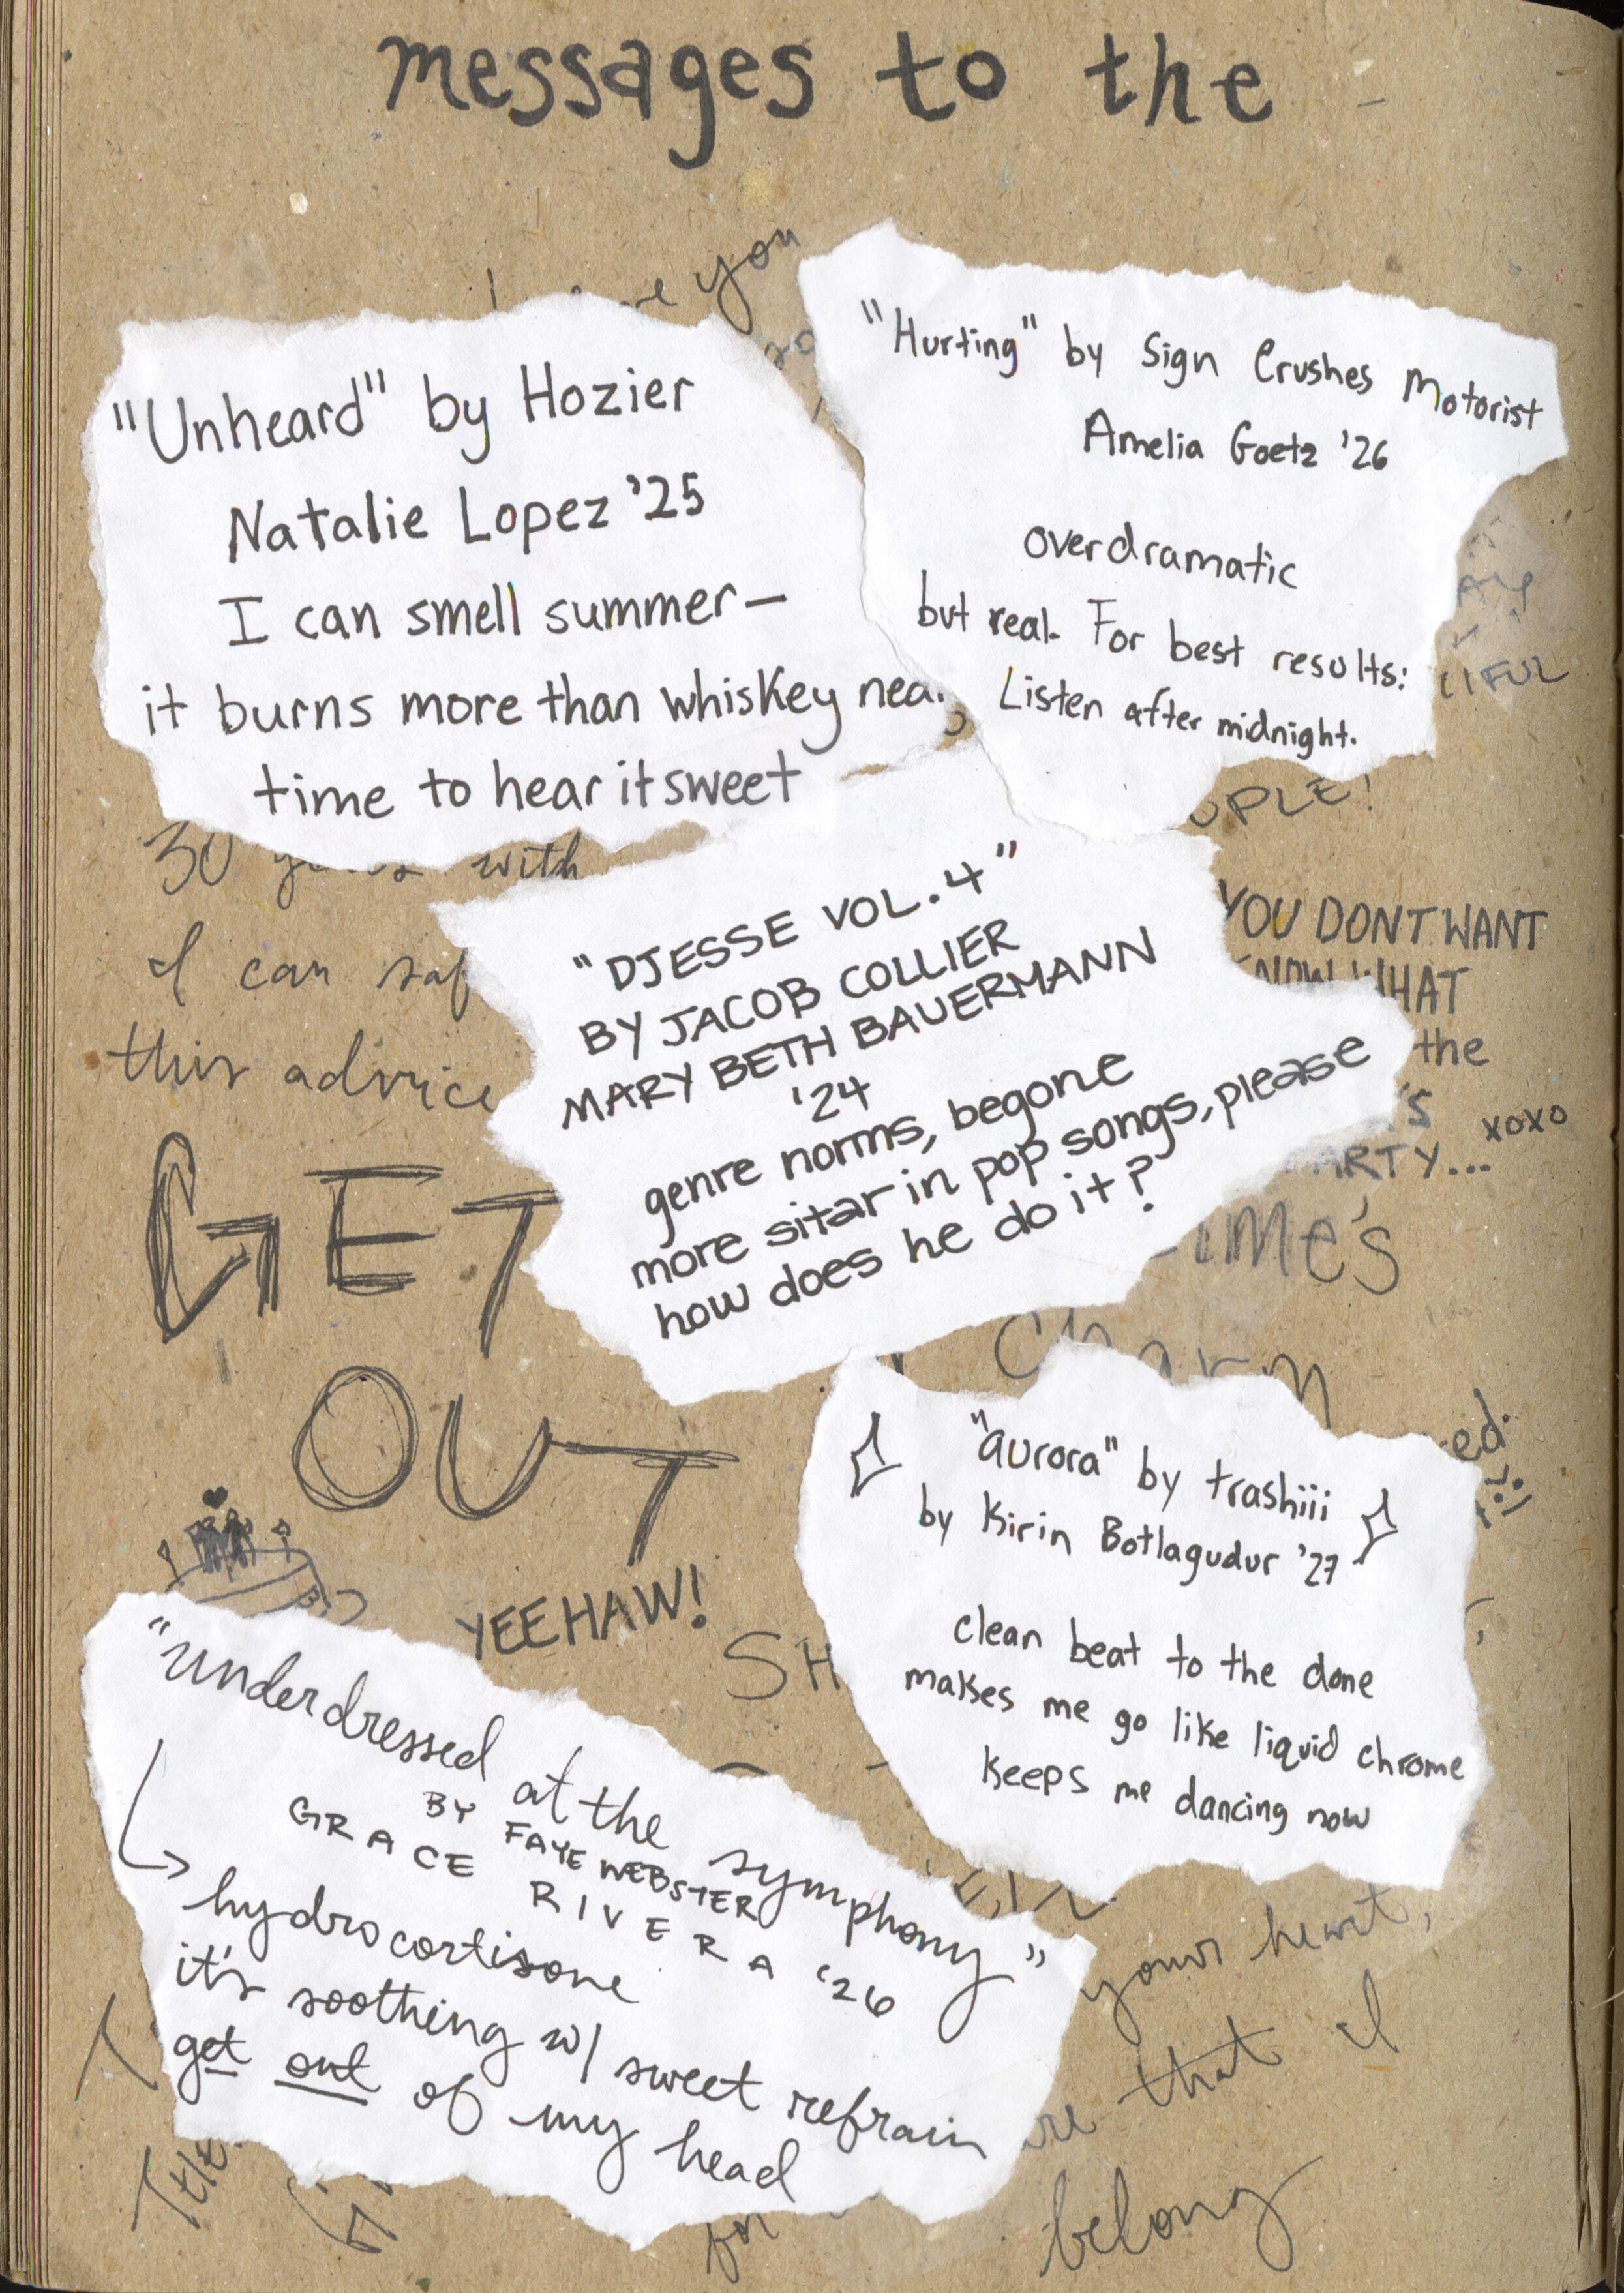 messages to the
you
"Unheard" by Hozier
Natalie Lopez '25
I can smell summer—
it burns more than whiskey near
time to hear it sweet
"Hurting" by Sign Crushes Motorist
Amelia Goetz '26
overdramatic
but real. For best results:
Listen after midnight.
30 with
I can
this advice
GET
OUT
YEEHAW!
YOU DONT WANT
WHAT
the
xoxo
"DJESSE VOL. 4"
BY JACOB COLLIER
MARY BETH BAUERMANN
'24
genre norms, begone
more sitar in pop songs, please
how does he do it?
charm
"aurora" by trashiii
by Kirin Botlagudur '27
clean beat to the dome
makes me go like liquid chrome
keeps me dancing now
"underdressed at the symphony"
BY FAYE WEBSTER
GRACE RIVERA '26
hydrocortisone
it's soothing w/ sweet refrain
get out of my head
your heart,
that I
belong